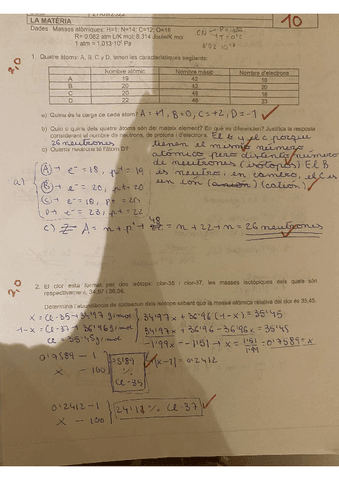 LA MATÈRIA
10
Dades: Masses atòmiques: H=1; N=14; C=12; O=16
R= 0.082 atm L/K mol; 8.314 Joule/K mol
1 atm = 1,013·10⁵ Pa
2,0
1. Quatre àtoms: A, B, C y D, tenen les característiques següents:
Nombre atòmic Nombre màssic Nombre d'electrons
A 19 42 18
B 20 43 20
C 20 18
D 22 48 23
a) Quina és la càrrega de cada àtom? A = +1, B=0, C=+2, D=-1
b) Quin o quins dels quatre àtoms són del mateix element? En què es diferencien? Justifica la resposta
considerant el nombre de neutrons, de protons i d'electrons. El B y el C porque
26 neutrones
tienen el mismo número
c) Quants neutrons té l'àtom D?
atómico pero distinto número
de neutrones (isótopos). El B
es neutro, en cambio, el C es
un ion (catión).
a)
A → e⁻ = 18, p⁺ = 19
B → e⁻ = 20, p⁺ = 20
C → e⁻ = 18, p⁺ = 20
D → e⁻ = 23, p⁺ = 22
c) A = n + p⁺ 48 = n + 22 → n = 26 neutrones
2,0
2. El clor està format per dos isòtops: clor-35 i clor-37, les masses isotòpiques dels quals són
respectivament, 34,97 i 36,96.
Determina l'abundància de cadascun dels isòtops sabent que la massa atòmica relativa del clor és 35,45.
x = Cl-35 → 34'97 g/mol
34'97x + 36'96(1-x) = 35'45
1-x = Cl-37 → 36'96 g/mol
34'97x + 36'96 - 36'96x = 35'45
Cl = 35'45 g/mol
-1'99x = -1'51 → x = 1'51/1'99 = 0'7589 = x
0'7589 - 1
x - 100
75'89 % Cl-35
1-x = 0'2412
0'2412 - 1
x - 100
24'12 % Cl-37